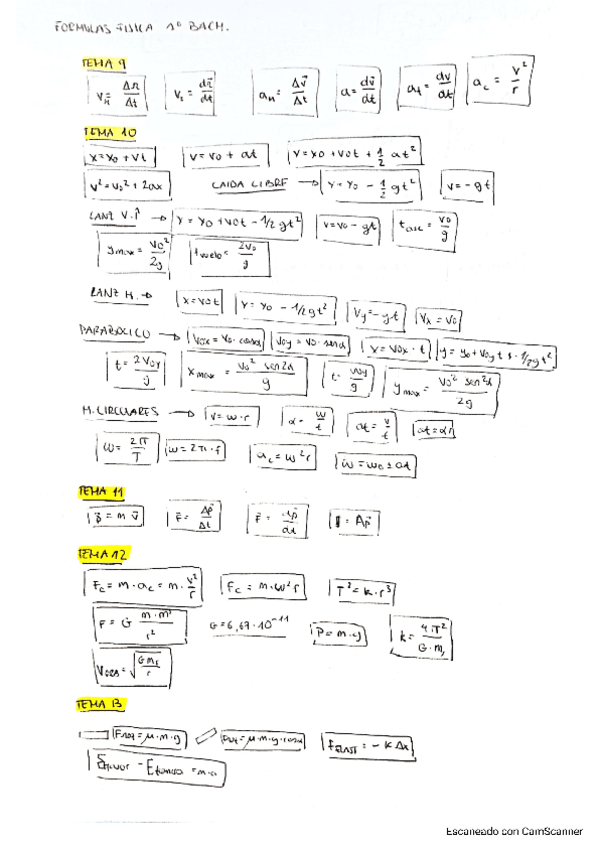 FORMULAS FISICA 1º BACH.
TEMA 9
Vₘ = Δr/Δt   Vᵢ = dr⃗/dt   aₘ = Δv⃗/Δt   a = dv⃗/dt   aₜ = dv/dt   a_c = v²/r
TEMA 10
x = x₀ + vt   v = v₀ + at   x = x₀ + v₀t + 1/2 at²
v² = v₀² + 2ax   CAIDA LIBRE → y = y₀ - 1/2 gt²   v = -gt
LANZ V.↑ → y = y₀ + v₀t - 1/2 gt²   v = v₀ - gt   t = v₀/g
y max = v₀²/2g   t vuelo = 2v₀/g
LANZ H. → x = v₀t   y = y₀ - 1/2 gt²   Vy = -gt   Vₓ = V₀
PARABOLICO → V₀x = V₀ · cosα   V₀y = V₀ · senα   x = V₀x · t   y = y₀ + V₀y t - 1/2 gt²
t = 2V₀y/g   x max = V₀² sen2α/g   t = V₀y/g   y max = V₀² sen²α/2g
M. CIRCULARES → v = ω · r   α = ω/t   at = v/t   at = αr
ω = 2π/T   ω = 2π · f   a_c = ω² r   ω = ω₀ ± αt
TEMA 11
p⃗ = m v⃗   F⃗ = Δp⃗/Δt   F⃗ = dp⃗/dt   = Δp⃗
TEMA 12
F_c = m · a_c = m · v²/r   F_c = m · ω² r   T² = k · r³
F = G m · m'/r²   G = 6,67 · 10⁻¹¹   P = m · g   k = 4π²/G · m
V = √(G m/r)
TEMA 13
F = μ · m · g   F = μ · m · g · cosα   F ELAST = -K Δx